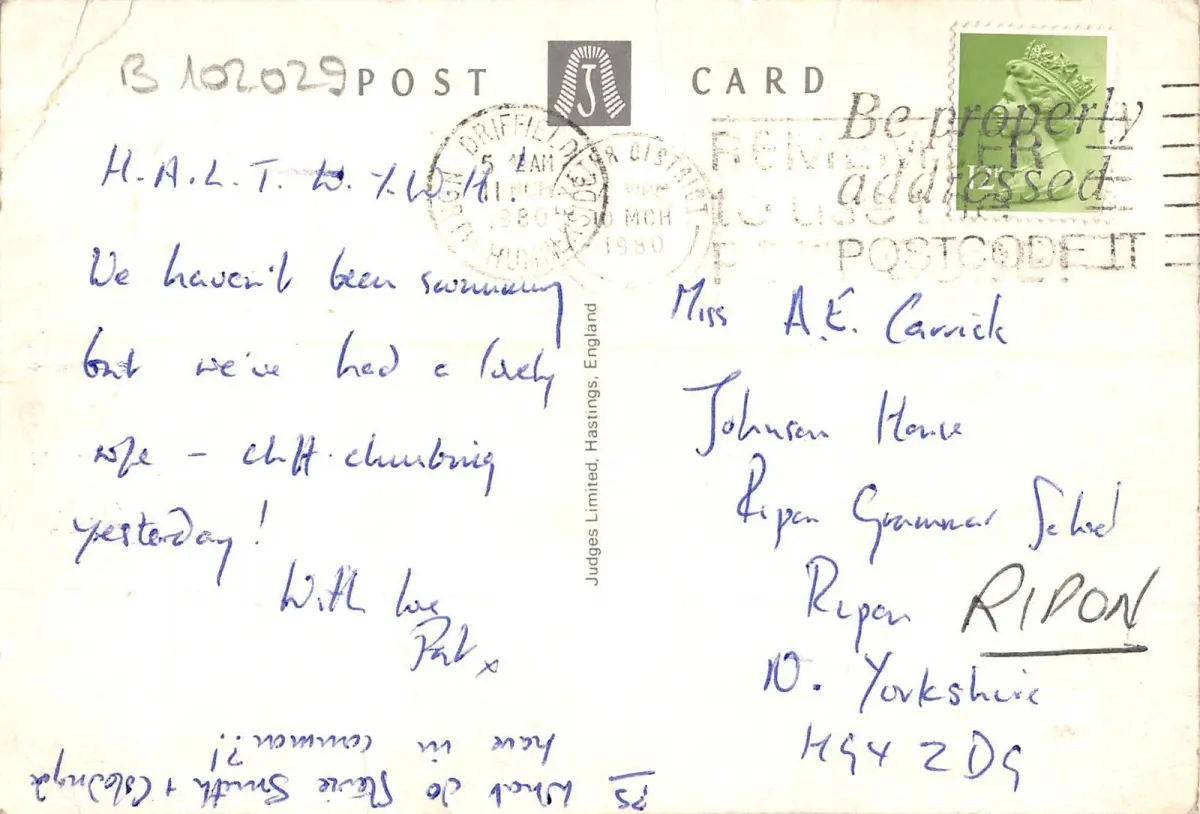 B 102029
POST CARD
H.A.L.T. W.Y.W.H.!
We haven't been swimming
but we've had a lovely
- cliff-climbing
yesterday!
With love
Pat x
PS What do Stevie Smith + Coleridge
have in common?!
Judges Limited, Hastings, England
DRIFFIELD
NORTH HUMBERSIDE
5 AM
11 MCH
1980
DISTRICT
10 MCH
1980
REMEMBER
to use the
Be properly
addressed
POSTCODE IT
12P
Miss A.E. Carrick
Johnson House
Ripon Grammar School
Ripon RIPON
N. Yorkshire
HG4 2DG